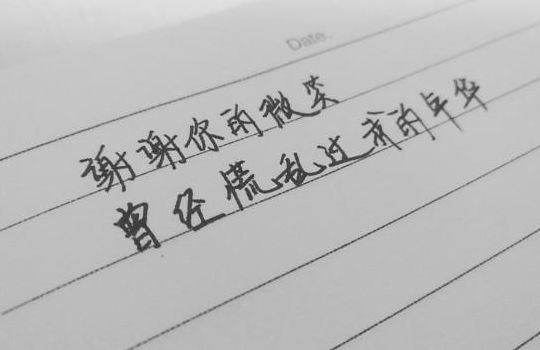 Date.
谢谢你的微笑
曾经慌乱过我的年华